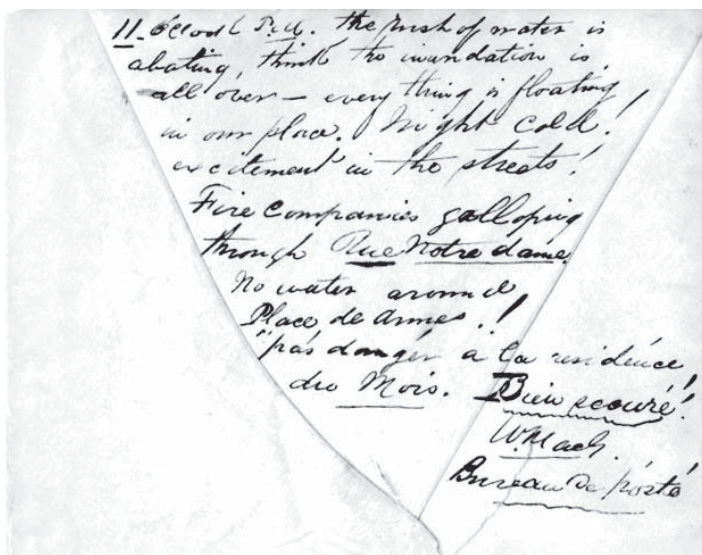 11- O'Clock P.M. the rush of water is
abating, think the inundation is
all over — every thing is floating
in our place. Night cold!
excitement in the streets!
Fire Companies galloping
through Rue Notre dame.
No water around
Place de Armes.!
"pas danger a la residence!
du Mois. Bien secure!
W. Mach.
Bureau de poste